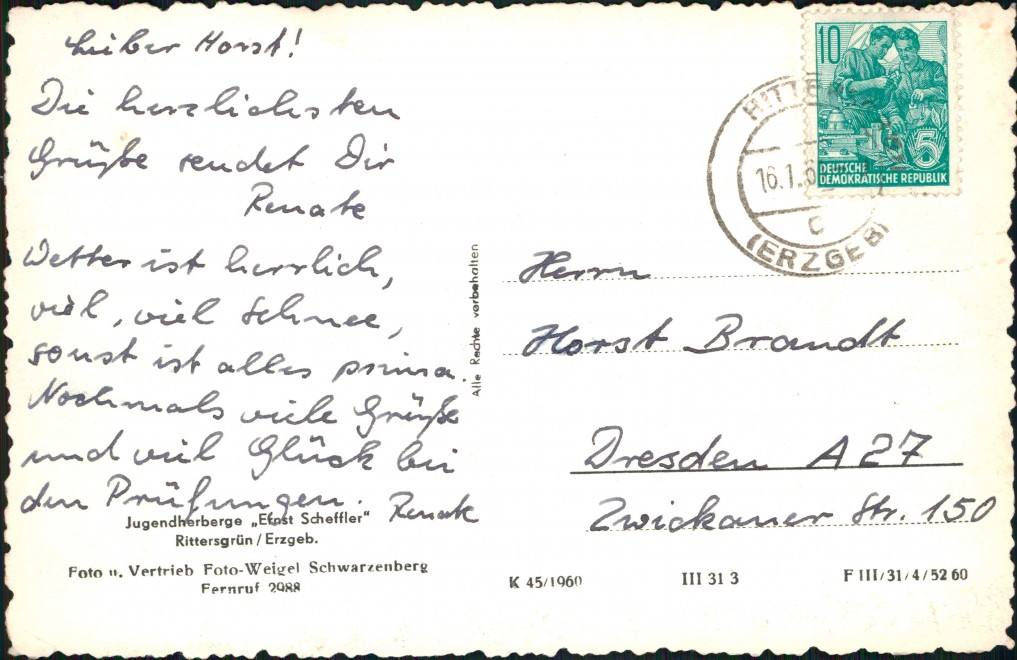 Lieber Horst!
Die herzlichsten
Grüße sendet Dir
Renate
Wetter ist herrlich,
viel, viel Schnee,
sonst ist alles prima.
Nochmals viele Grüße
und viel Glück bei
den Prüfungen. Renate
Jugendherberge „Ernst Scheffler"
Rittersgrün/Erzgeb.
Foto u. Vertrieb Foto-Weigel Schwarzenberg
Fernruf 2988
Alle Rechte vorbehalten
10
5
DEUTSCHE
DEMOKRATISCHE REPUBLIK
16.1.
c
(ERZGEB)
Herrn
Horst Brandt
Dresden A 27
Zwickauer Str. 150
K 45/1960
III 31 3
F III/31/4/52 60